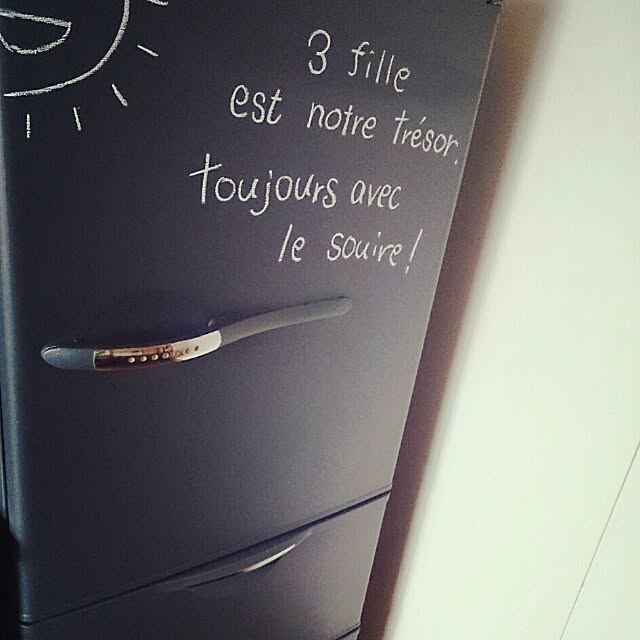 3 fille
est notre trésor.
toujours avec
le souire!